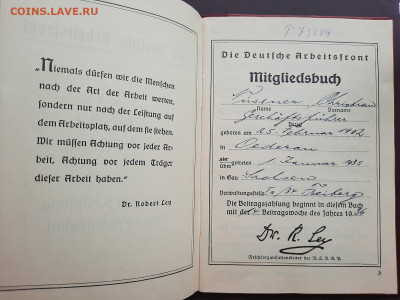 COINS.SU
„Niemals dürfen wir die Menschen
nach der Art der Arbeit werten,
sondern nur nach der Leistung auf
dem Arbeitsplatz, auf dem sie stehen.
Wir müssen Achtung vor jeder Ar-
beit, Achtung vor jedem Träger
dieser Arbeit haben."
Dr. Robert Ley
Die Deutsche Arbeitsfront
Mitgliedsbuch
Christian
Name Vorname
Geschäftsführer
Beruf
geboren am 25. Februar
in Oederan
getreten 1. Januar 1935
in Gau Sachsen
Verwaltungsstelle Freiberg
Die Beitragszahlung beginnt in diesem Buch
mit der Beitragswoche des Jahres 1936
Dr. R. Ley
Reichsorganisationsleiter der N.S.D.A.P.
3